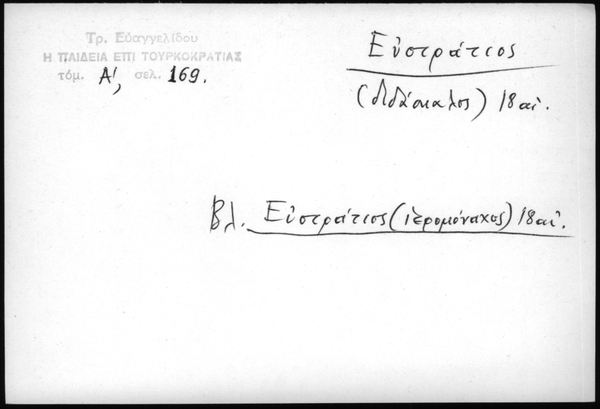 Τρ. Εὐαγγελίδου
Η ΠΑΙΔΕΙΑ ΕΠΙ ΤΟΥΡΚΟΚΡΑΤΙΑΣ
τόμ. Α', σελ. 169.
Εὐστράτιος
(διδάσκαλος) 18 αἰ.
Βλ. Εὐστράτιος (ἱερομόναχος) 18 αἰ.